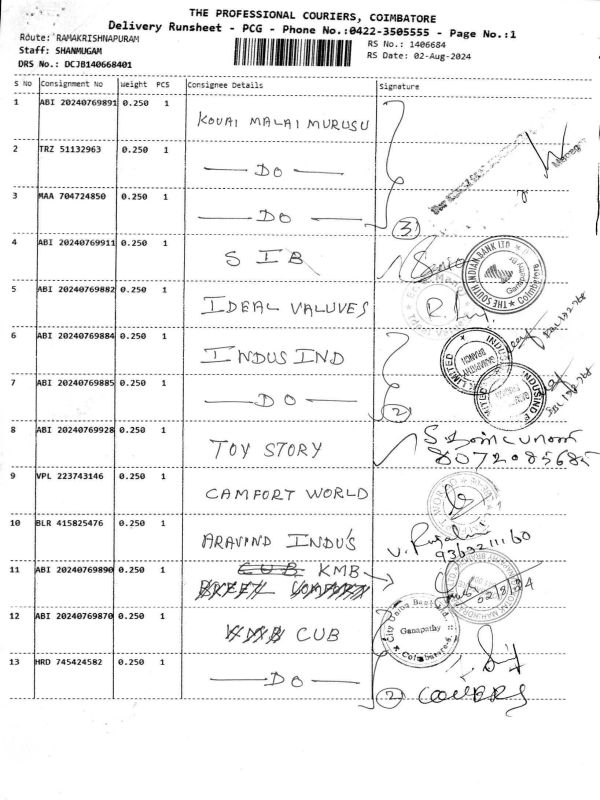 THE PROFESSIONAL COURIERS, COIMBATORE
Delivery Runsheet - PCG - Phone No.:0422-3505555 - Page No.:1
Route: RAMAKRISHNAPURAM
Staff: SHANMUGAM
DRS No.: DCJB140668401
RS No.: 1406684
RS Date: 02-Aug-2024
S No Consignment No Weight PCS Consignee Details Signature
1 ABI 20240769891 0.250 1 KOVAI MALAI MURUSU
2 TRZ 51132963 0.250 1 — DO —
3 MAA 704724850 0.250 1 — DO — 3
4 ABI 20240769911 0.250 1 S I B
THE SOUTH INDIAN BANK LTD. Ganapathy Br Coimbatore
5 ABI 20240769882 0.250 1 IDEAL VALUVES
6 ABI 20240769884 0.250 1 INDUS IND
7 ABI 20240769885 0.250 1 — DO — 2
INDUSIND
8 ABI 20240769928 0.250 1 TOY STORY
8072085685
9 VPL 223743146 0.250 1 CAMFORT WORLD
10 BLR 415825476 0.250 1 ARAVIND INDU'S
9363211160
11 ABI 20240769890 0.250 1 CUB KMB
02/8/24
12 ABI 20240769870 0.250 1 CUB
City Union Bank Ltd. Ganapathy Coimbatore
13 HRD 745424582 0.250 1 — DO — 2 COVERS